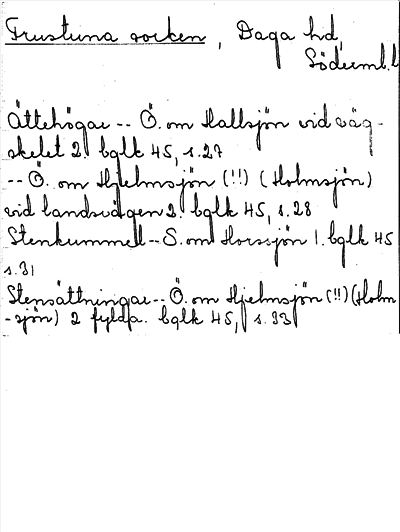 Frustuna socken, Daga hd,
Söderml.l
Ättehögar -- Ö. om Hallsjön vid väg-
skelet 2. bqlk 45, s.27
-- Ö. om Hjelmsjön (!!) (Holmsjön)
vid landsvägen 2. bqlk 45, s.28
Stenkummel -- S. om Horssjön 1. bqlk 45
s.31
Stensättningar -- Ö. om Hjelmsjön (!!) (Holm
-sjön) 2 fylda. bqlk 45, s.33